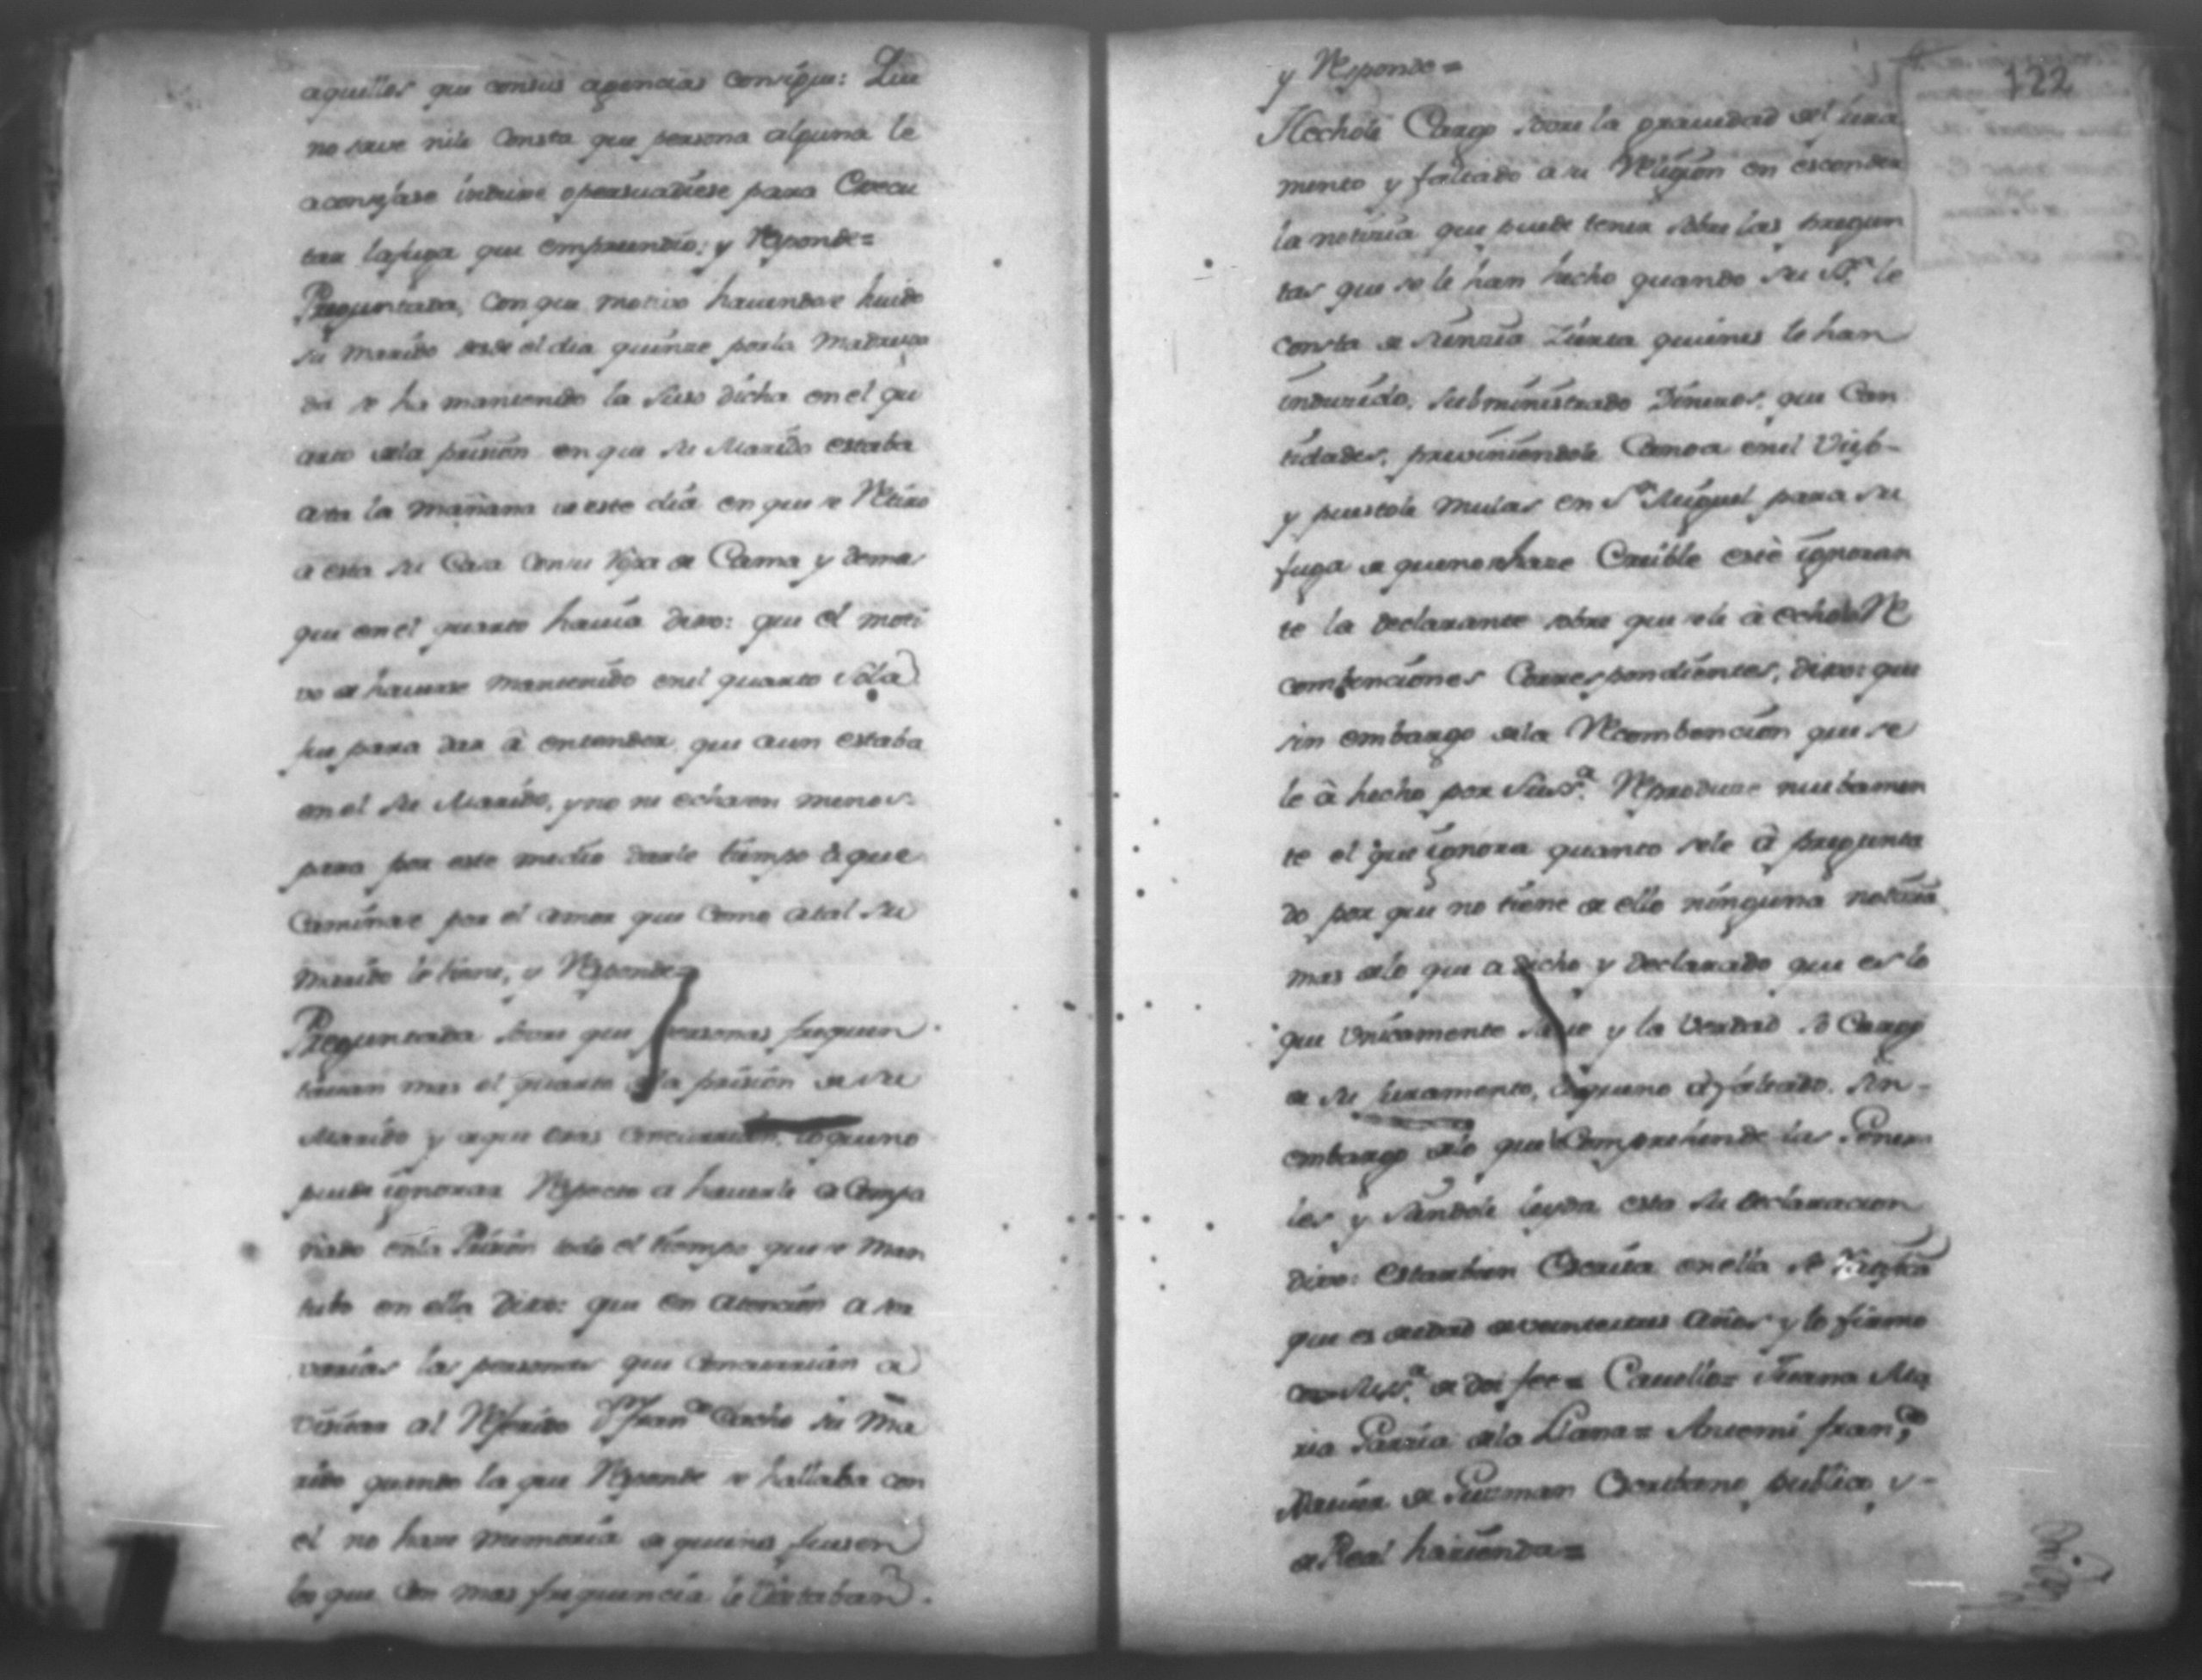 aquellos que consus agencias consigue: Que
no save nile Consta que persona alguna le
aconsejase induxese opersuadiese para Execu
tar lafuga que emprendio: y Responde=
Preguntada, con que motivo haviendose huido
su marido desde el dia quinze porla madruga
da se ha mantenido la suso dicha en el qu
arto dela prision en que su Marido estaba
asta la mañana de este dia en que se Retiro
a esta su Casa consu Ropa de Cama y demas
que en el quarto havia dixo: que el moti
vo de haverse mantenido enel quarto sola
fue para dar à entender que aun estaba
en el su Marido, y no se echasen menos
para por este medio darle tiempo à que
Caminase por el amor que como atal su
marido le tiene, y Responde=
Preguntada sobre que personas frequen
tavan mas el quarto dela prision de su
Marido y aque oras concurrian, lo queno
puede ignorar Respecto a haverle acompa
ñado enla Prision todo el tiempo que se man
tubo en ella Dixo: que en atencion a ser
varias las personas que Concurrian a
visitar al Referido Dn Franco Cacho su Ma
rido quando la que Responde se hallaba con
el no hace memoria de quienes fuesen
los que con mas frequencia le visitaban.
y Responde=
122
Hechole Cargo sobre la gravedad del Jura
mento y faltado a su Religion en esconder
la noticia que puede tener sobre las pregun
tas que se le han hecho quando su Sa. le
consta de ciencia Zierta quienes le han
inducido, subministrado Dineros, que Can
tidades, previniendole Canoa enel
y puestole mulas en Sn Miguel para su
fuga de quenosehaze Creible esté ignoran
te la declarante sobre que sele à echo Re
combenciones Correspondientes, dixo: que
sin embargo dela Recombencion que se
le à hecho por Su Sa. Reproduze nuebamen
te el que ignora quanto sele à pregunta
do por que no tiene de ello ninguna noticia
mas delo que a dicho y declarado que es lo
que Unicamente save y la Verdad so Cargo
de su Juramento, à queno à faltado. Sin-
embargo delo que Comprehende las Genera
les y siendole leyda esta su declaracion
dixo: estarbien Escrita en ella se Ratifica
que es deedad de años y lo firmo
con su Sa. de doi fee= Cavello= Juana Ma
ria Garzia dela Llana= Antemi Franco
Xavier de Guzman Escribano publico y-
de Real hazienda=